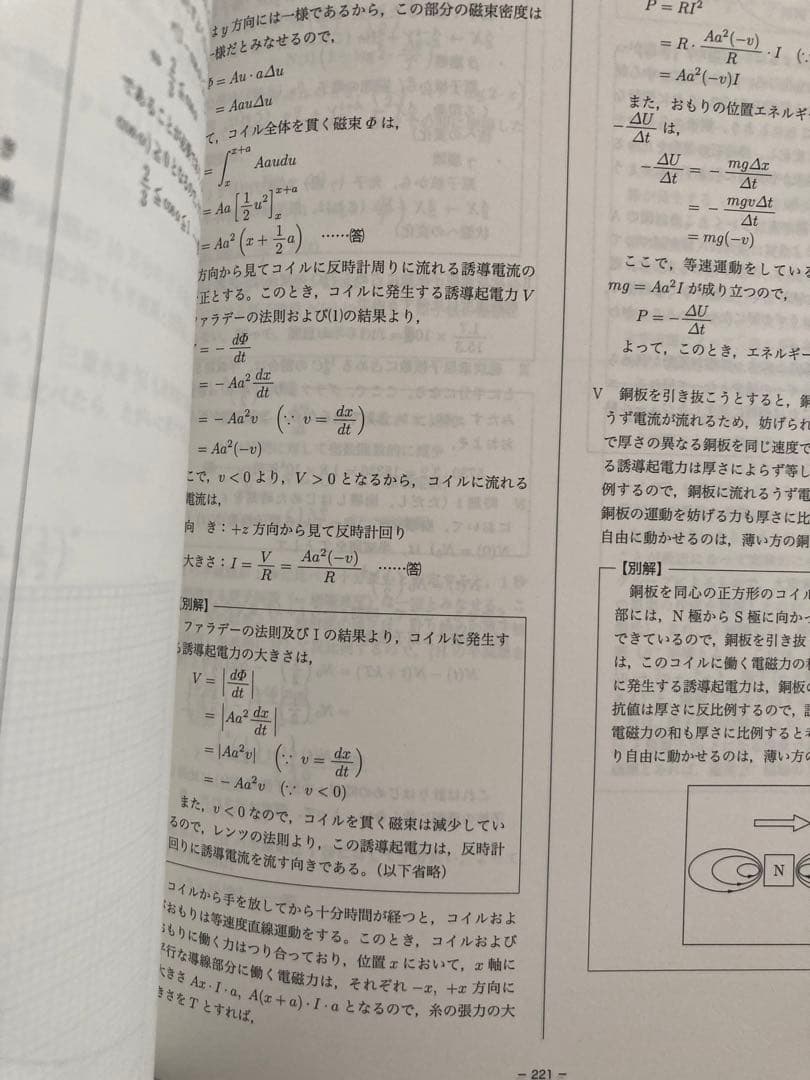 は y 方向には一様であるから，この部分の磁束密度は
一様だとみなせるので，
Φ = Au・aΔu
= AauΔu
て，コイル全体を貫く磁束 Φ は，
= ∫_x^{x+a} Aaudu
= Aa [1/2 u²]_x^{x+a}
= Aa² (x + 1/2 a) ……(答)
方向から見てコイルに反時計周りに流れる誘導電流の
正とする。このとき，コイルに発生する誘導起電力 V
ファラデーの法則および(1)の結果より，
= − dΦ/dt
= − Aa² dx/dt
= − Aa²v (∵ v = dx/dt)
= Aa²(−v)
こで，v < 0 より，V > 0 となるから，コイルに流れる
電流は，
向 き：+z 方向から見て反時計回り
大きさ：I = V/R = Aa²(−v)/R ……(答)
【別解】
ファラデーの法則及び I の結果より，コイルに発生す
る誘導起電力の大きさは，
V = |dΦ/dt|
= |Aa² dx/dt|
= |Aa²v| (∵ v = dx/dt)
= − Aa²v (∵ v < 0)
また，v < 0 なので，コイルを貫く磁束は減少してい
るので，レンツの法則より，この誘導起電力は，反時計
回りに誘導電流を流す向きである。（以下省略）
コイルから手を放してから十分時間が経つと，コイルおよ
びおもりは等速度直線運動をする。このとき，コイルおよび
おもりに働く力はつり合っており，位置 x において，x 軸に
平行な導線部分に働く電磁力は，それぞれ −x, +x 方向に
大きさ Ax・I・a, A(x + a)・I・a となるので，糸の張力の大
きさを T とすれば，
P = RI²
= R・Aa²(−v)/R・I (∵
= Aa²(−v)I
また，おもりの位置エネルギー
−ΔU/Δt は，
−ΔU/Δt = − mgΔx/Δt
= − mgvΔt/Δt
= mg(−v)
ここで，等速運動をしている
mg = Aa²I が成り立つので，
P = −ΔU/Δt
よって，このとき，エネルギー
V 銅板を引き抜こうとすると，銅
うず電流が流れるため，妨げられ
で厚さの異なる銅板を同じ速度で
る誘導起電力は厚さによらず等し
例するので，銅板に流れるうず電
銅板の運動を妨げる力も厚さに比
自由に動かせるのは，薄い方の銅
【別解】
銅板を同心の正方形のコイル
部には，N 極から S 極に向かっ
できているので，銅板を引き抜
は，このコイルに働く電磁力の和
に発生する誘導起電力は，銅板の
抗値は厚さに反比例するので，
電磁力の和も厚さに比例すると考
り自由に動かせるのは，薄い方の
N
− 221 −